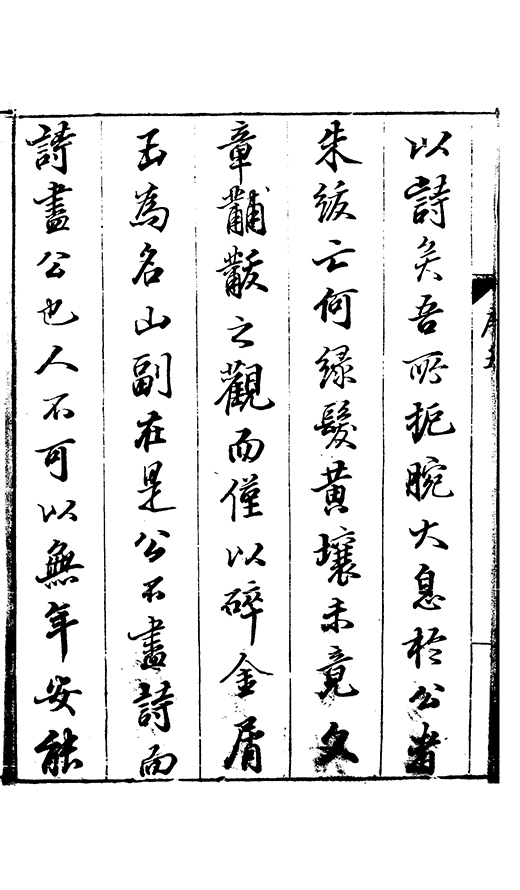 以詩矣吾所扼腕大息於公者
朱紱亡何緑髮黃壤未竟文
章黼黻之觀而僅以碎金屑
玉為名山副在是公不盡詩而
詩盡公也人不可以無年安能
序五